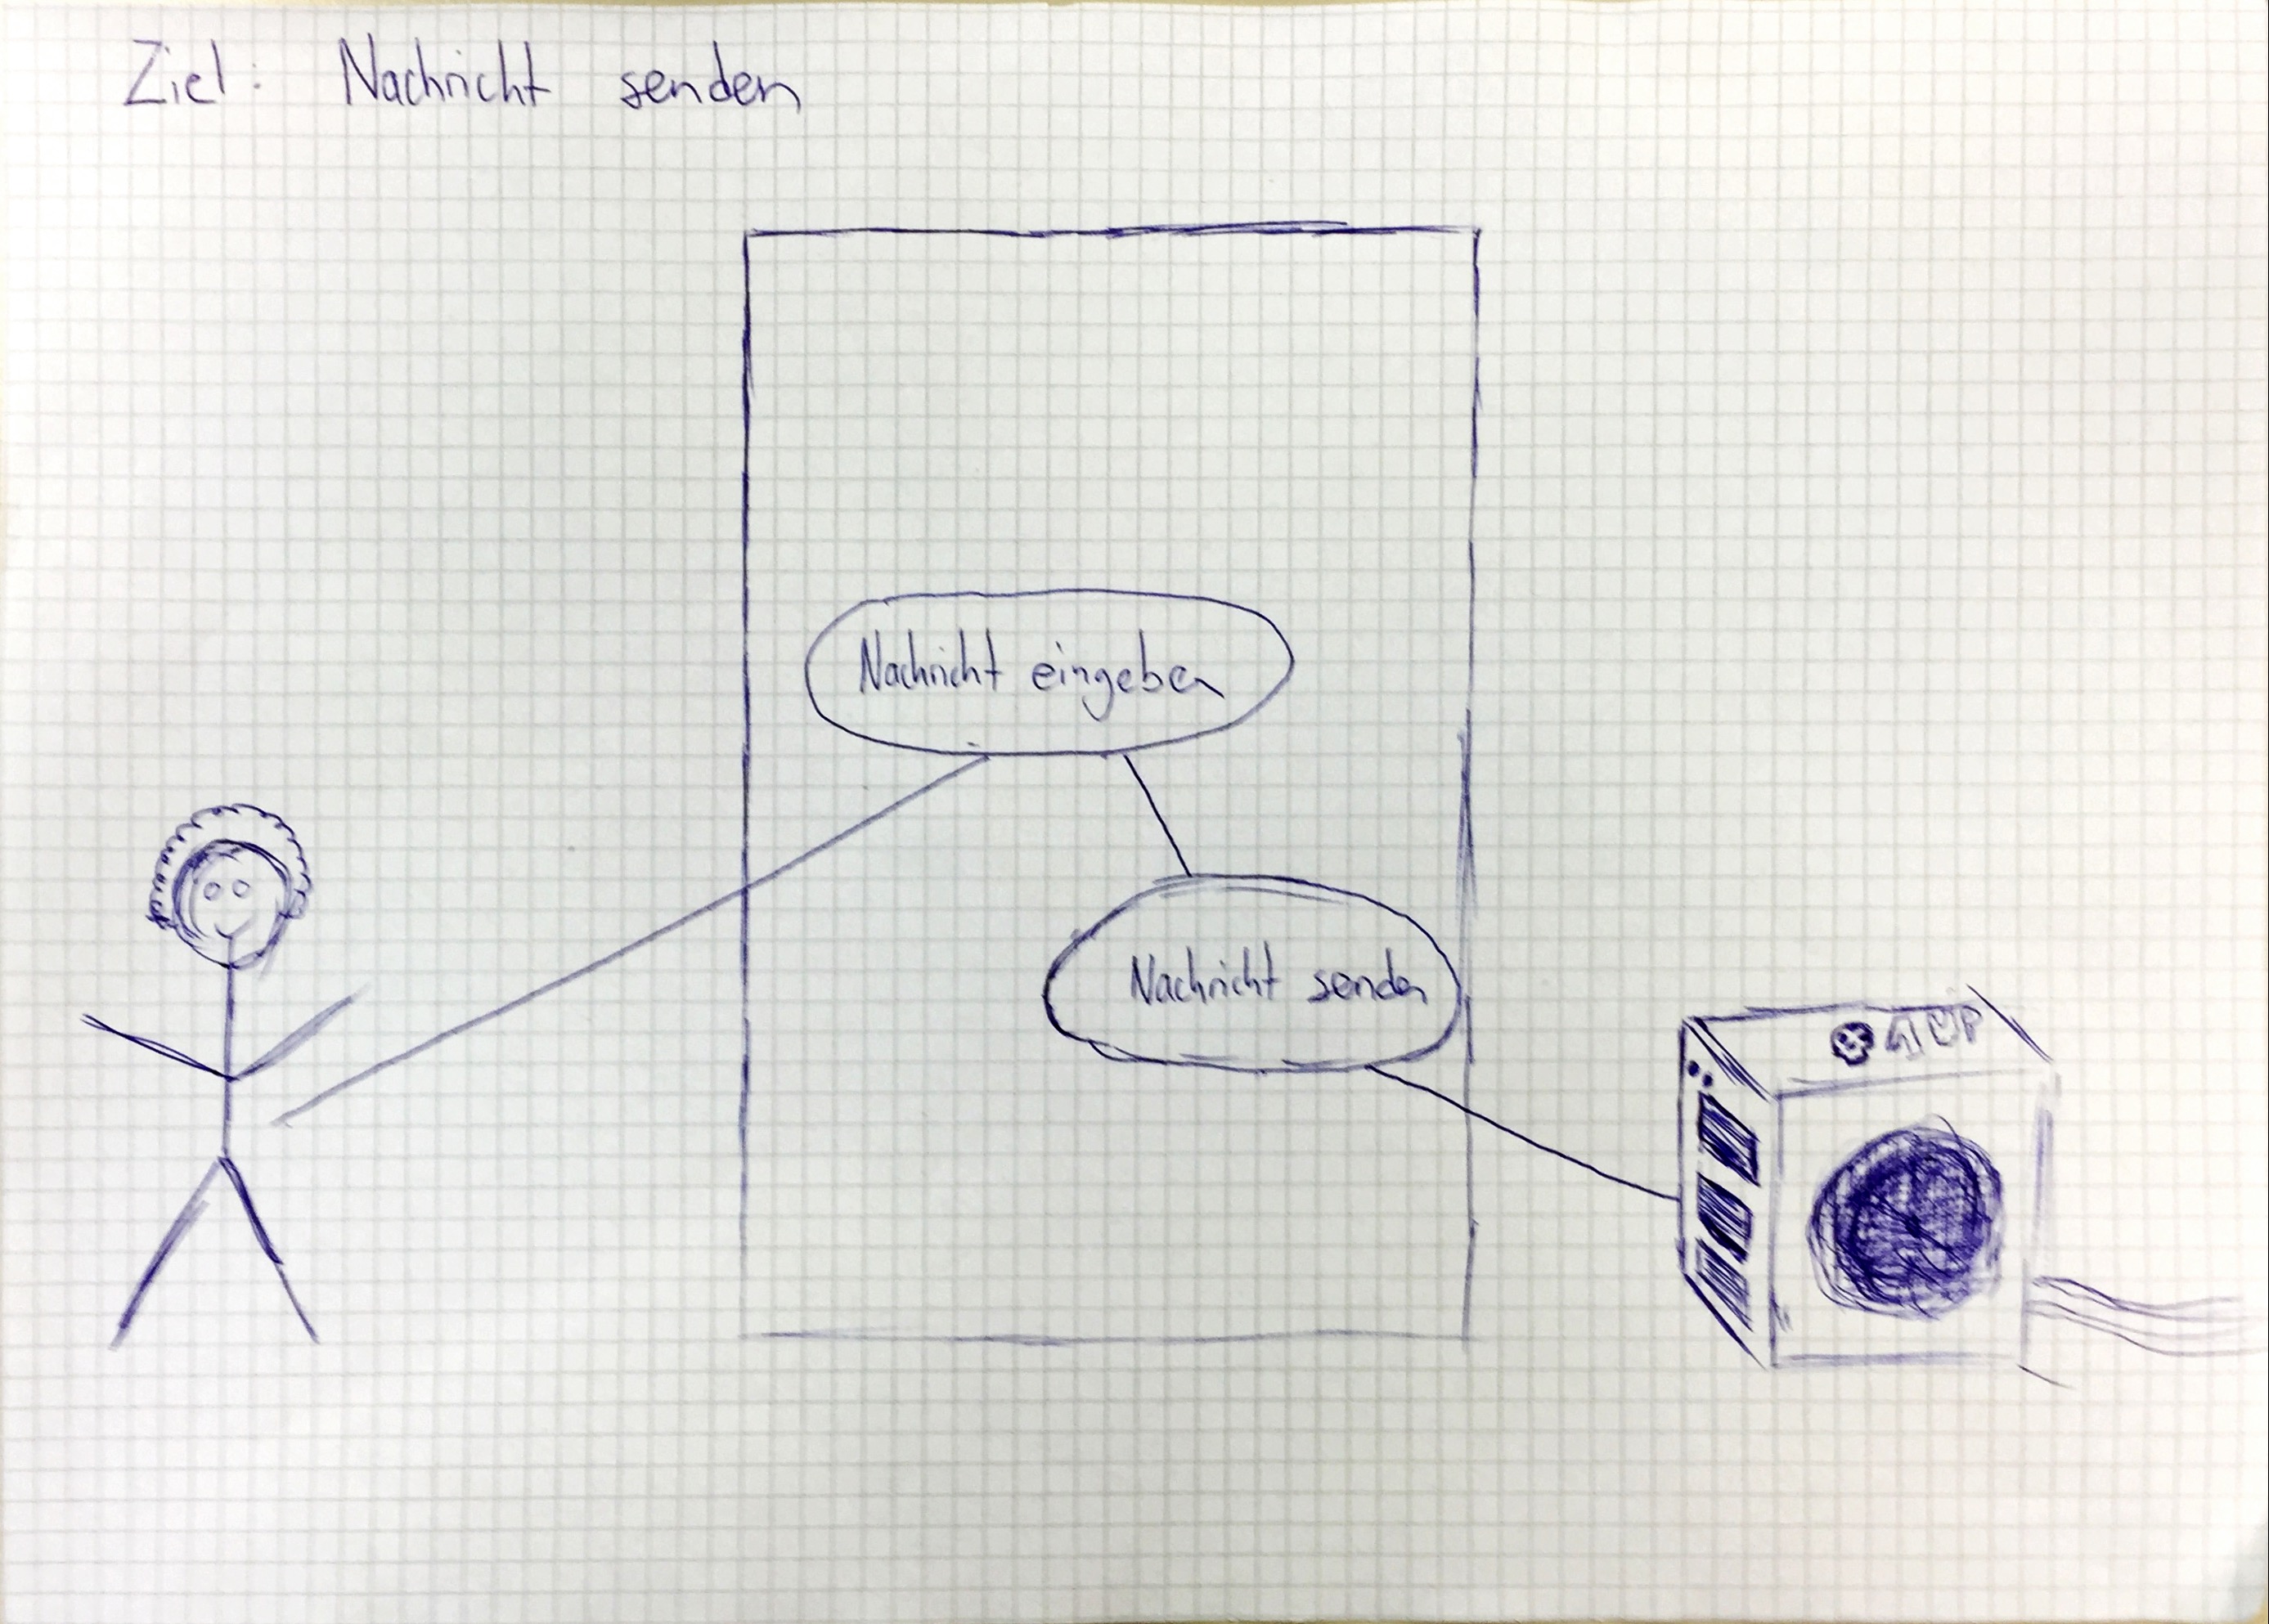 Ziel: Nachricht senden
Nachricht eingeben
Nachricht senden